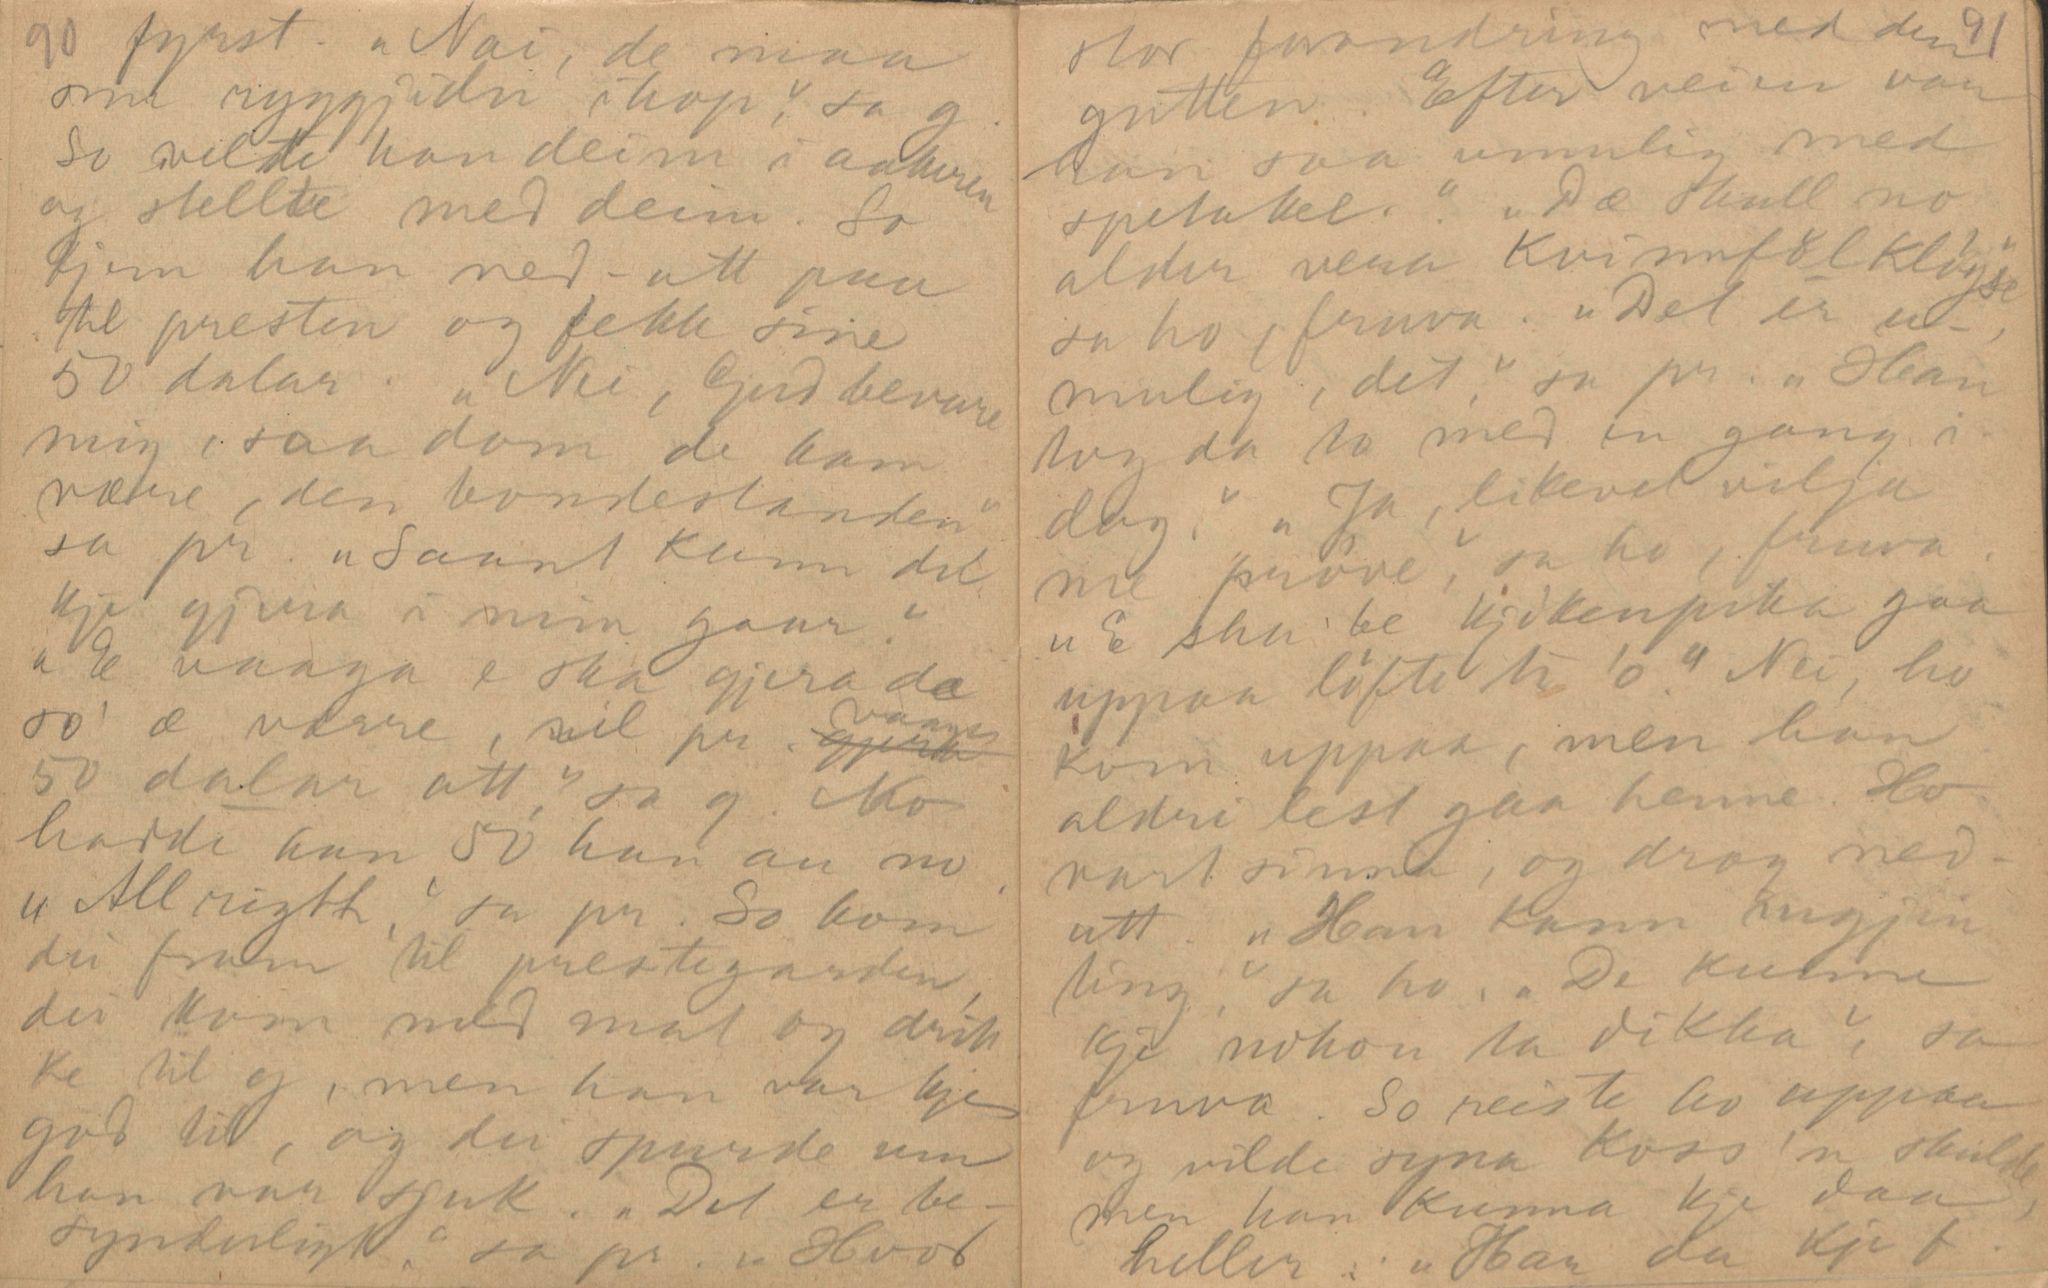 90
fyrst. „Nai, de maa
sme ryggjidn ihop," sa g.
So vilde han deim i aakeren
og stellte med deim. So
kjem han ned-att paa
til presten og fekk sine
50 dalar. „Nei, Gud bevare
mig, saa dom de kam
være, den bondestanden"
sa pr. „Saant kunn dei
kje gjera i min gaar."
„E vaaga e ska gjera dæ
so' æ værre, vil pr. vaaga
50 dalar att," sa g. No
hadde han 50 han au no.
„All rigth," sa pr. So kom
dei fram til prestegarden,
dei kom med mat og drik
ke til g, men han var kje
god til, og dei spurde um
han var sjuk. „Det er be-
synderligt." sa pr. „Hvor
91
stor forandring med den
gutten. Efter veien var
han saa umulig med
spetakel." „Dæ skull no
alder vera kvinnfölkklöyse",
sa ho, fruva. „Det er u-
mulig, det," sa pr. „Han
tog da to med en gang i
dag." „Ja, likevel vilja
me pröve," sa ho, fruva.
„E ska be kjökenpika gaa
uppaa löfte te 'o." Nei, ho
kom uppaa, men han
aldri lest gaa henne. Ho
vart sinna, og drog ned-
att. „Han kann ingjin
ting," sa ho. „De kunne
kje nokon ta dikka", sa
fruva. So reiste ho uppaa
og vilde syna koss 'n skulde,
men han kunna kje daa
heller. „Han du kje f.